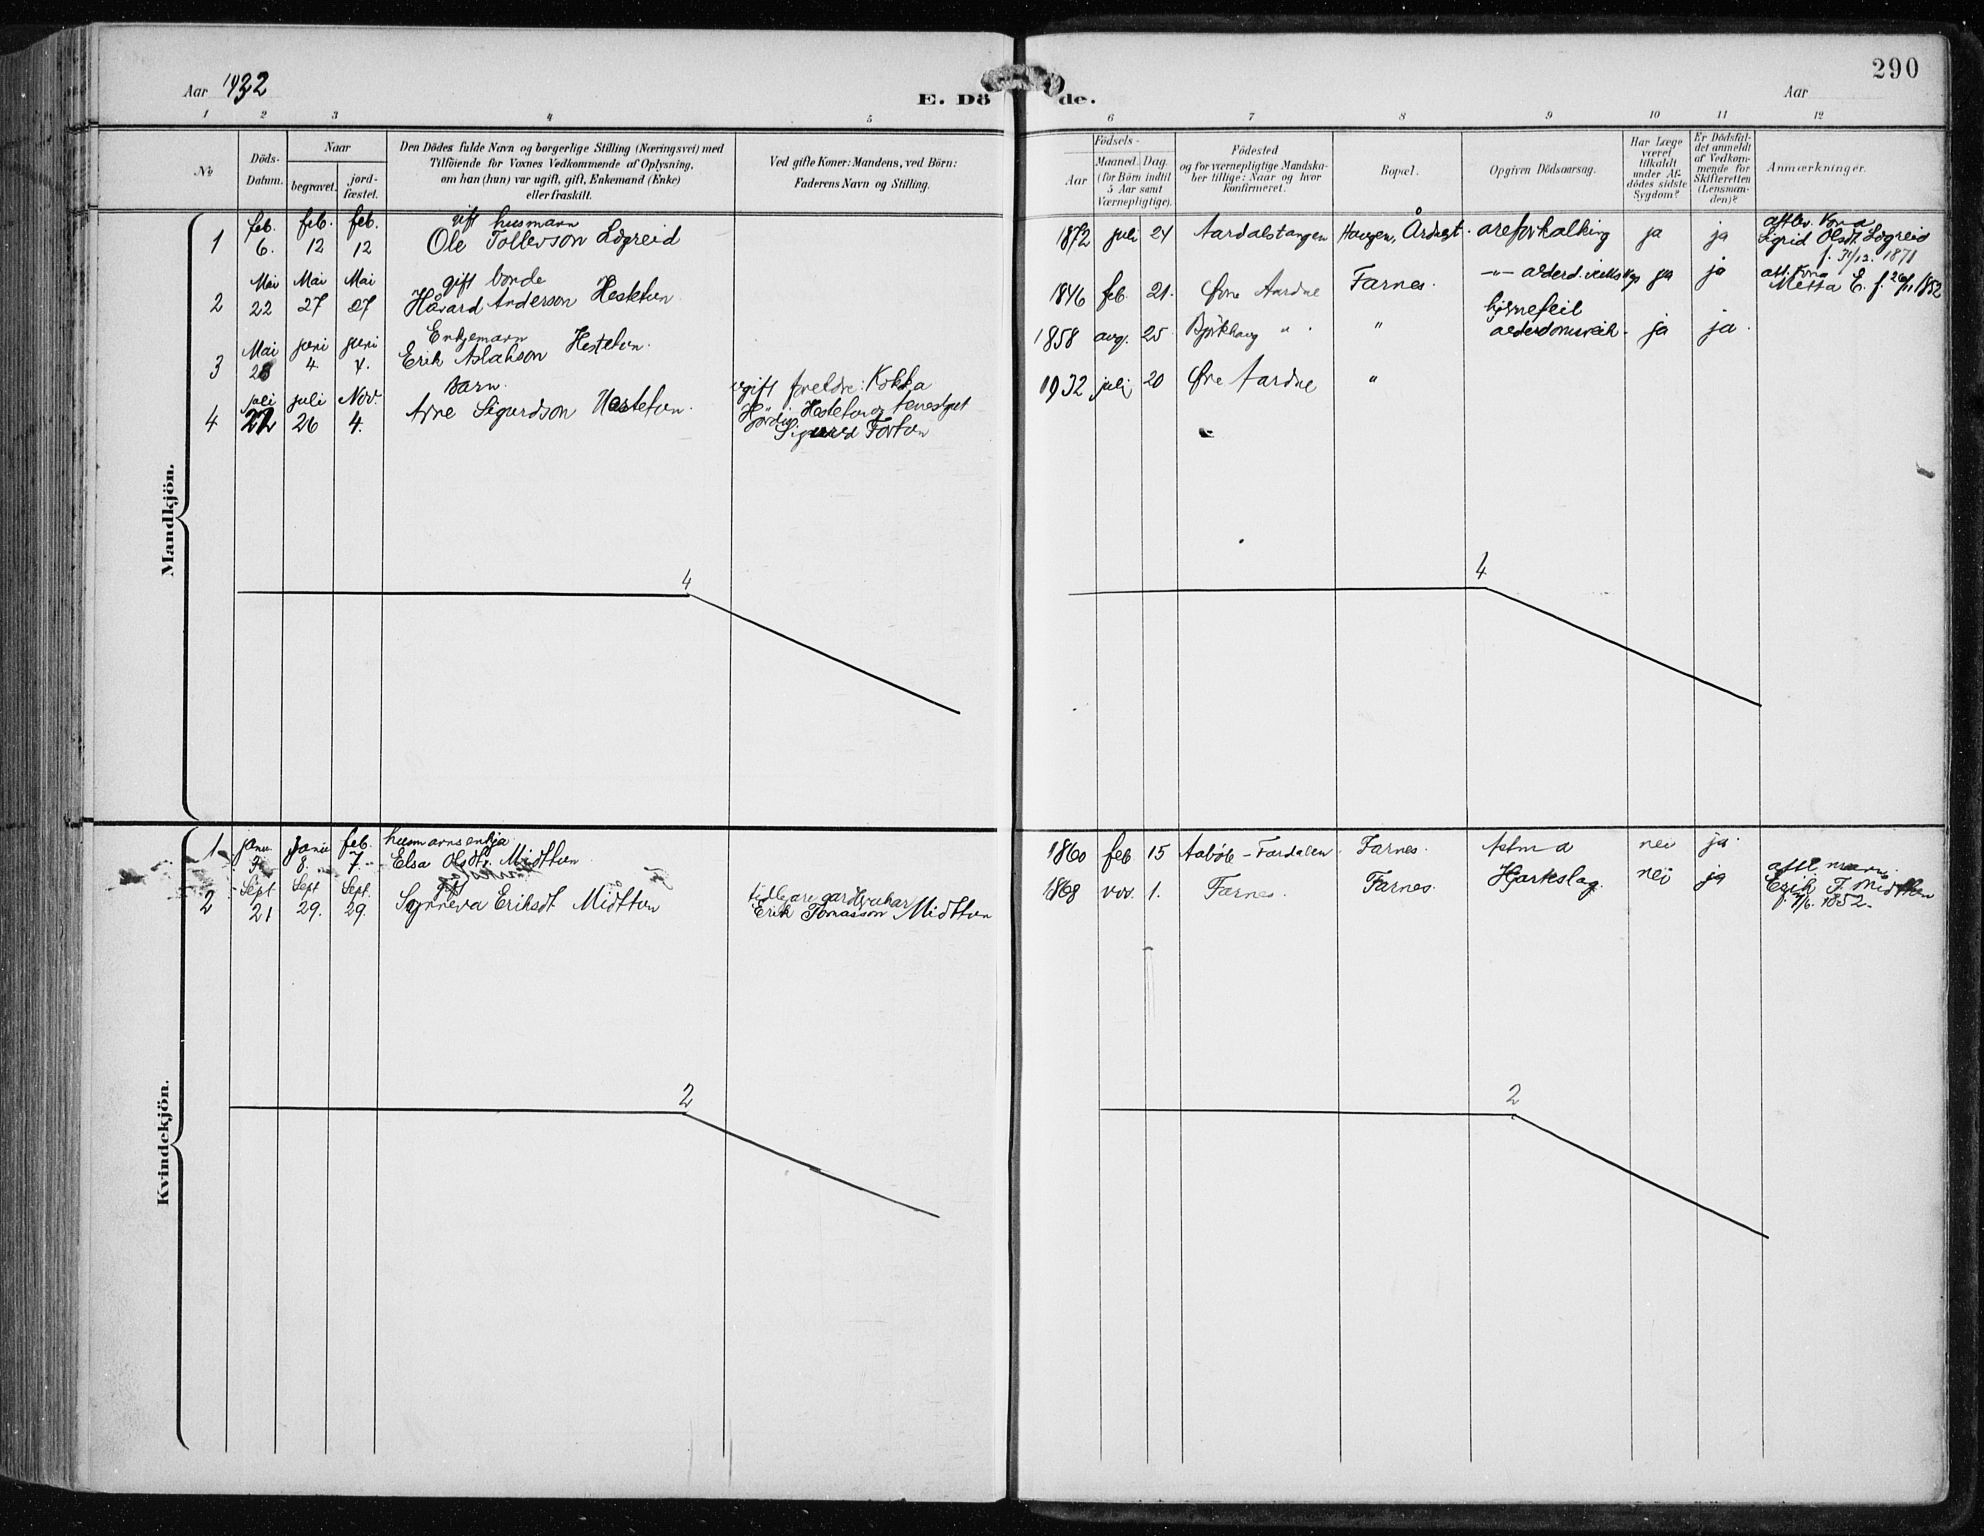 290
Aar 1932
E. Dö de.
Aar
1 2 3 4 5 6 7 8 9 10 11 12
No
Döds-
Datum.
Naar
begravet.
jord-
fæstet.
Den Dödes fulde Navn og borgerlige Stilling (Næringsvei) med
Tilföiende for Voxnes Vedkommende af Oplysning,
om han (hun) var ugift, gift, Enkemand (Enke)
eller fraskilt.
Ved gifte Koner: Mandens, ved Börn:
Faderens Navn og Stilling.
Födsels-
Aar
Maaned. Dag.
(for Börn indtil
5 Aar samt
Værnepligtige).
Födested
og for værnepligtige Mandska-
ber tillige: Naar og hvor
konfirmeret.
Bopæl.
Opgiven Dödsaarsag.
Har Læge
været
tilkaldt
under Af-
dödes sidste
Sygdom?
Er Dödsfal-
det anmeldt
af Vedkom-
mende for
Skifteretten
(Lensman-
den)?
Anmærkninger.
Mandkjön.
feb. feb. feb. gift husmann
1 6. 12 12 Ole Tollevson Lögreid 1872 juli 24 Aardalstangen Haugen, Årdalst. areforkalking ja ja
attlev. Kona
Sigrid Olsdt. Lögreid
f. 31/12. 1871
Mai Mai Mai gift bonde
2 22 27 27 Håvard Anderson Hestetun. 1846 feb. 21. Øvre Aardne Farnes. ja ja
att. Kona
Metta E. f. 1852
hjernefeil
Mai juni juni Enkjemann
3 28 4. 4. Erik Aslakson Hestetun. 1858 aug. 25. Björkhaug " " alderdomsveik. ja ja.
juli juli Nov. Barn.
4 22 26 4. Arne Sigurdson Hestetun. 1932 juli 20 Øvre Aardne "
ugift foreldre: Kokka
Hjördis Hestetun og tenestgut
Sigurd Förtun
4 4
Kvindekjön.
1. janu janu feb. husmannsenkja
3. 8. 7. Elsa Olsdtr. Midttun. 1860 feb 15 Aaböle - Fardalen. Farnes. Astma nei ja.
Sept Sept Sept. gift
2 21 29. 29. Synneva Eriksdt Midttun 1868 nov. 1. Farnes. Farnes. Hjarteslag. nei ja
tidlegare gardbrukar
Erik Tomasson Midttun
attl. mann
Erik T. Midttun
f. 1/6. 1852.
2 2